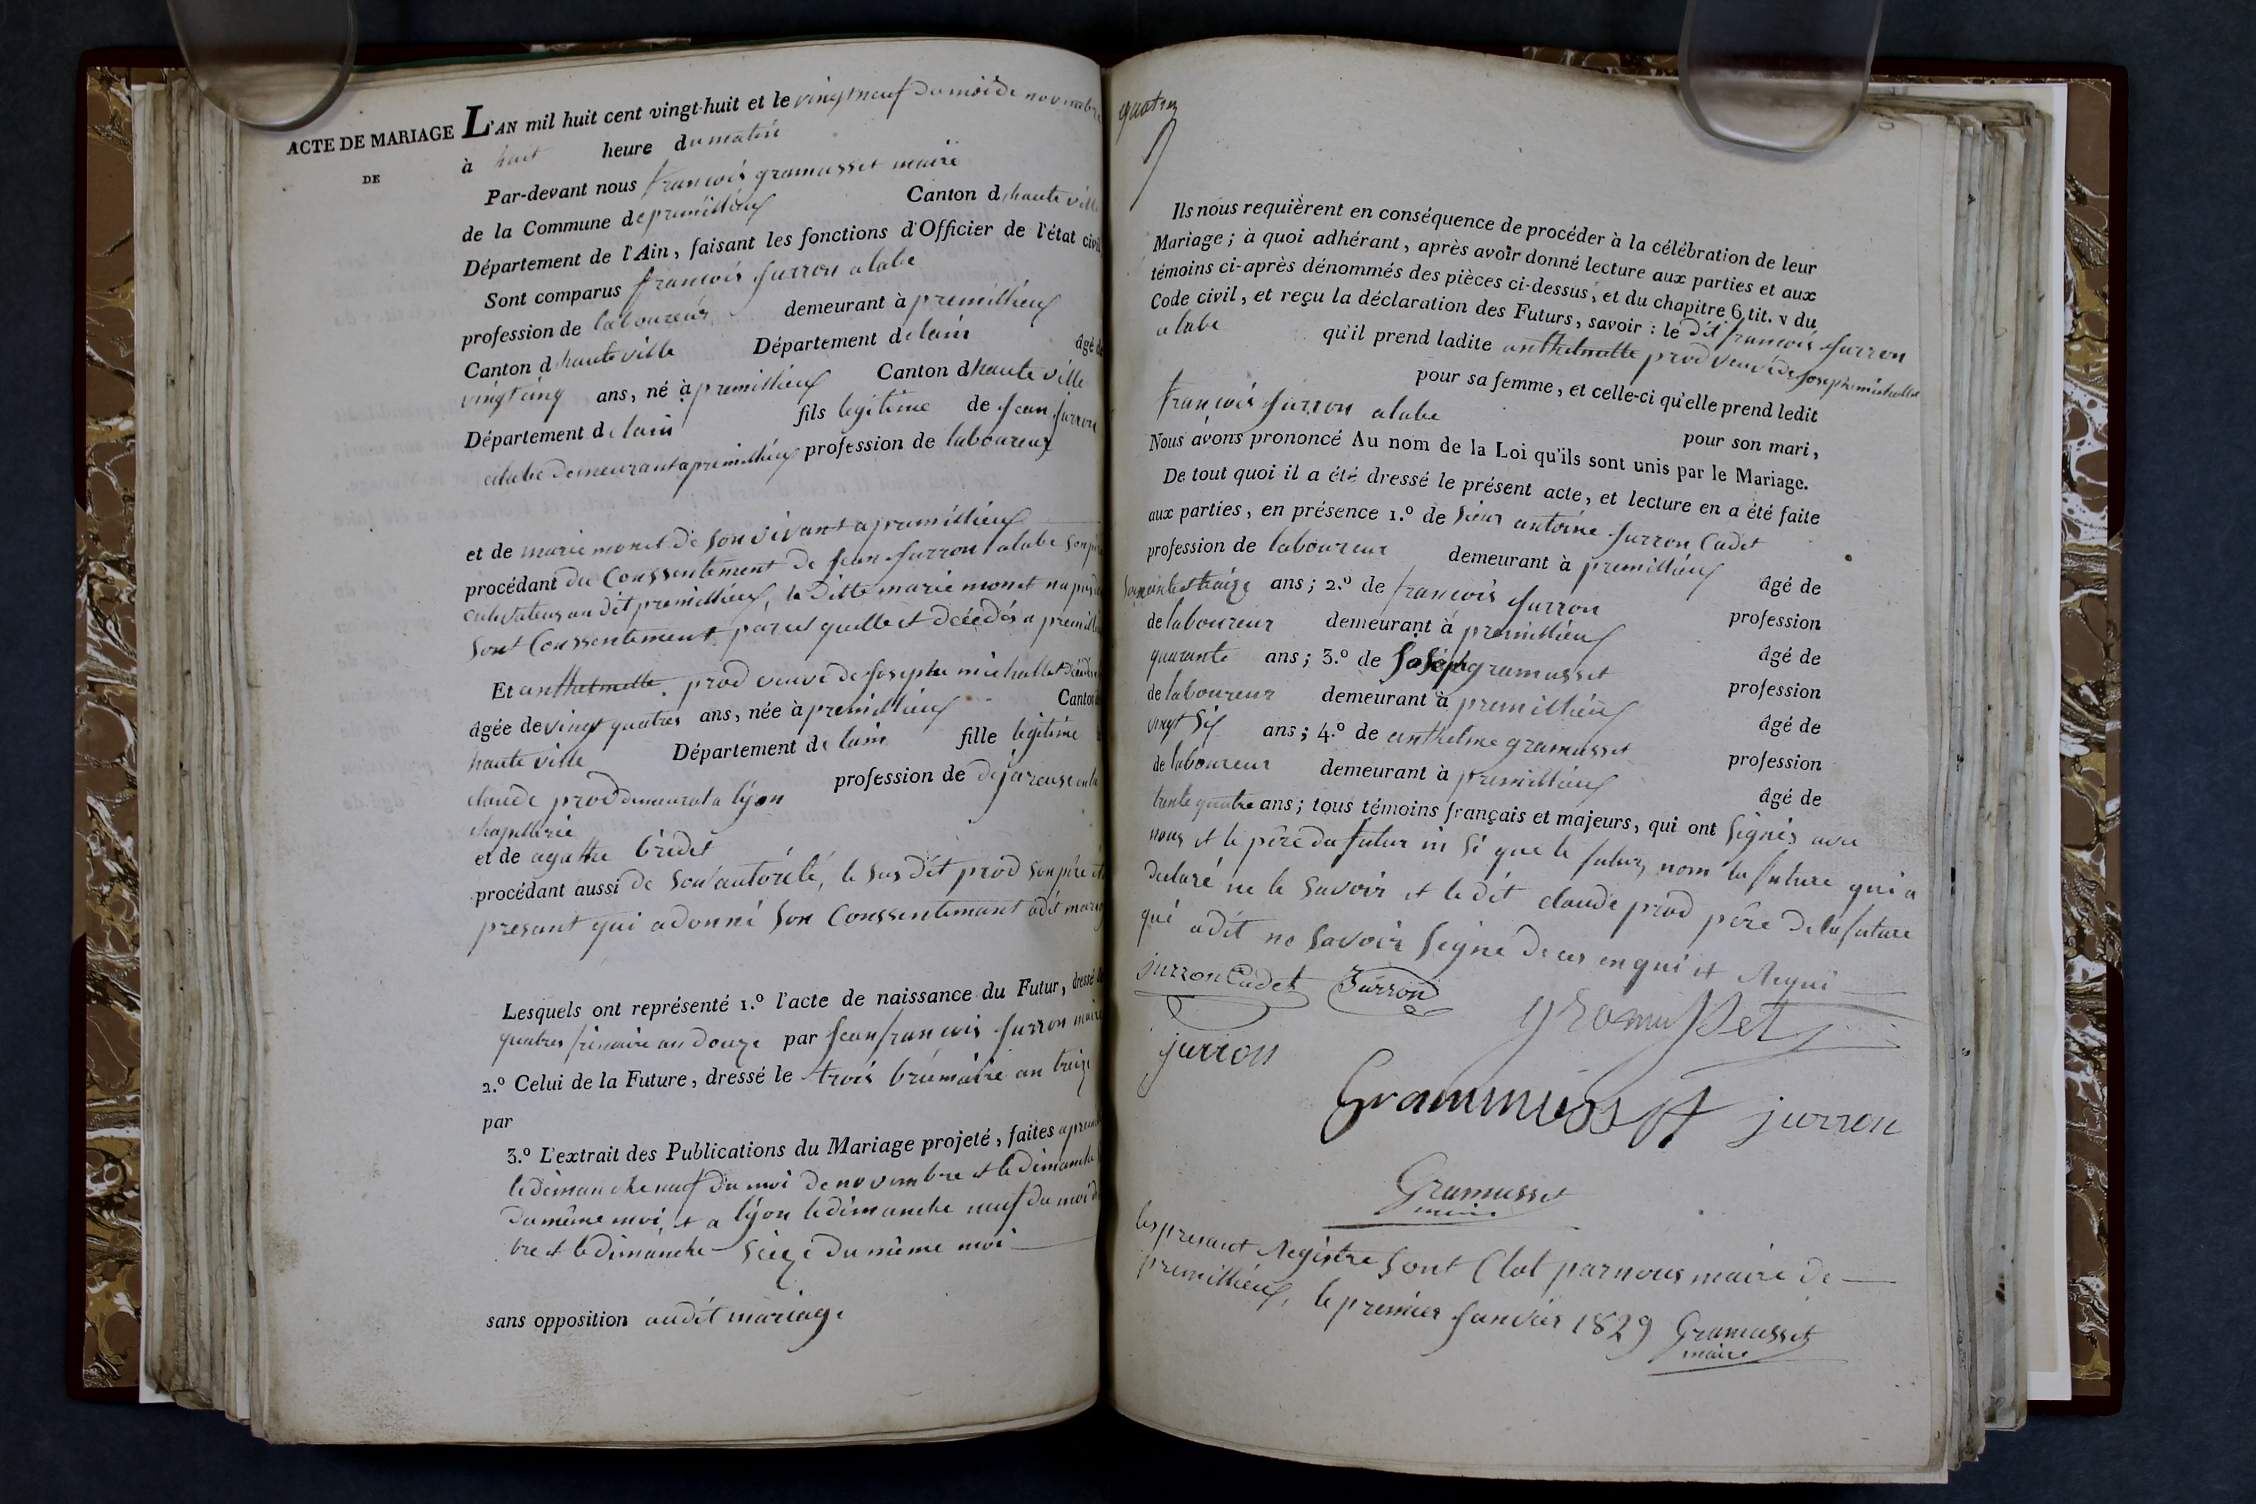 ACTE DE MARIAGE
DE
L'AN mil huit cent vingt-huit et le vingt neuf du moi de novembre
à huit heure du matin
Par-devant nous francois gramusset maire
de la Commune de premillieux Canton d hauteville
Département de l'Ain, faisant les fonctions d'Officier de l'état civil
Sont comparus francois jurron alabe
profession de laboureur demeurant à premillieux
Canton d hauteville Département de lain âgé de
vingt cinq ans, né à premillieux Canton d hauteville
Département de lain fils legitime de jean jurron
alabe demeurant a premillieux profession de laboureux
et de marie monet de son vivant a premillieux
procédant du Conssentement de jean jurron alabe son père
cultivateur au dit premillieux, la ditte marie monet na pu
sont Conssentement par ce quelle et décédés a premillieux
Et anthelmette prod veuve de joseph michallet
âgée de vingt quatres ans, née à premillieux Canton
haute ville Département de lain fille legitime
claude prod demeurant a lyon profession de
chapellerie
et de agathe bridet
procédant aussi de son autorité, le sus dit prod son père
presant qui a donné son Conssentemant adit mariage
Lesquels ont représenté 1.º l'acte de naissance du Futur, dressé le
quatres frimaire an douze par jean francois jurron maire
2.º Celui de la Future, dressé le trois brumaire an treize
par
3.º L'extrait des Publications du Mariage projeté, faites a
le dimanche neuf du moi de novembre et le dimanche
du même moi, et a lyon le dimanche neuf du moi de
bre et le dimanche seize du même moi
sans opposition au dit mariage
quatre
Ils nous requièrent en conséquence de procéder à la célébration de leur
Mariage; à quoi adhérant, après avoir donné lecture aux parties et aux
témoins ci-après dénommés des pièces ci-dessus, et du chapitre 6, tit. v du
Code civil, et reçu la déclaration des Futurs, savoir : le dit francois jurron
alabe qu'il prend ladite anthelmette prod veuve de joseph michallet
pour sa femme, et celle-ci qu'elle prend ledit
francois jurron alabe pour son mari,
Nous avons prononcé Au nom de la Loi qu'ils sont unis par le Mariage.
De tout quoi il a été dressé le présent acte, et lecture en a été faite
aux parties, en présence 1.º de sieur antoine jurron Cadet
profession de laboureur demeurant à premillieux âgé de
soixante treize ans; 2.º de francois jurron profession
de laboureur demeurant à premillieux âgé de
quarante ans; 3.º de joseph gramusset profession
de laboureur demeurant à premillieux âgé de
vingt six ans; 4.º de anthelme gramusset profession
de laboureur demeurant à premillieux âgé de
trente quatre ans; tous témoins français et majeurs, qui ont signés avec
nous et le père du futur in si que le futur, nom la future qui a
declaré ne le savoir et le dit claude prod père de la future
qui a dit ne savoir signe de ces enqui et Requi
jurron Cadet Jurron
gramusset
jurron
Grammusset jurron
Gramusset
maire
les presant Registre sont Clot par nous maire de
premillieux, le premier janvier 1829 Gramusset
maire